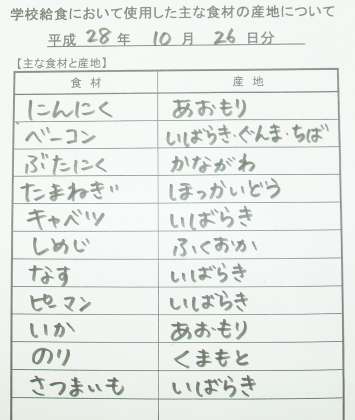 学校給食において使用した主な食材の産地について
平成 28 年 10 月 26 日分
【主な食材と産地】
食材 産地
にんにく あおもり
ベーコン いばらき・ぐんま・ちば
ぶたにく かながわ
たまねぎ ほっかいどう
キャベツ いばらき
しめじ ふくおか
なす いばらき
ピーマン いばらき
いか あおもり
のり くまもと
さつまいも いばらき